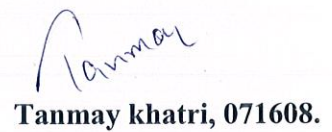 Tanmay
Tanmay khatri, 071608.